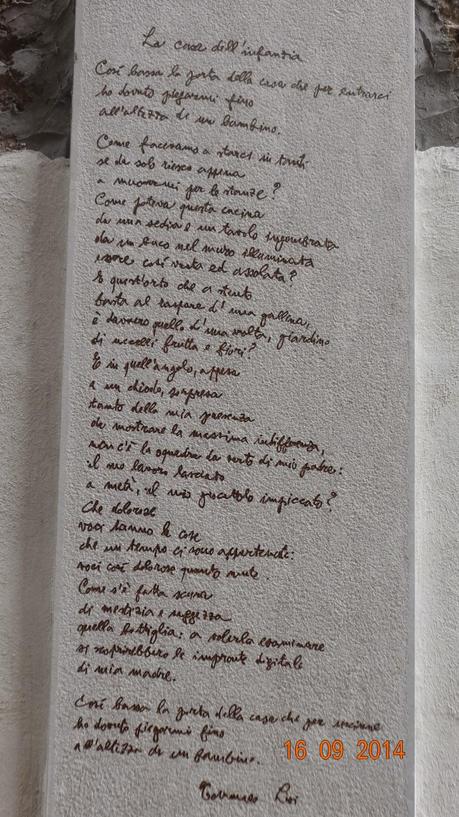 La casa dell'infanzia
Così bassa la porta della casa che per entrarci
ho dovuto piegarmi fino
all'altezza di un bambino.
Come facevamo a starci in tanti
se da solo riesco appena
a muovermi per le stanze?
Come poteva questa cucina
da una sedia e un tavolo ingombrata
da un buco nel muro illuminata
essere così vasta ed assolata?
E quest'orto che a stento
basta al raspare d'una gallina,
è davvero quello d'una volta, giardino
di uccelli frutta e fiori?
E in quell'angolo, appesa
a un chiodo, sorpresa
tanto della mia presenza
da mostrare la massima indifferenza,
non c'è la squadra da sarto di mio padre:
il suo lavoro lasciato
a metà, il mio giocattolo impiccato?
Che dolorose
voci hanno le cose
che un tempo ci sono appartenute:
voci così dolorose quanto mute.
Come s'è fatta scura
di mestizia e saggezza
quella bottiglia: a volerla esaminare
si scoprirebbero le impronte digitali
di mia madre.
Così bassa la porta della casa che per uscirne
ho dovuto piegarmi fino
all'altezza di un bambino.
16 09 2014